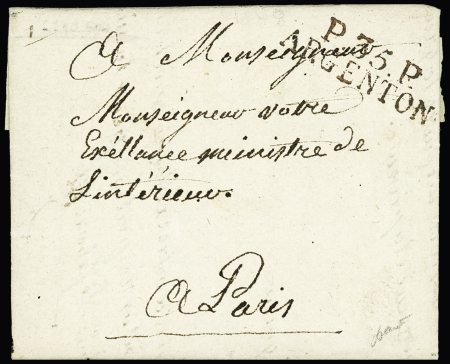 P.35.P.
ARGENTON
A Monseigneur
Monseigneur votre
Exéllance ministre de
L'intérieur.
A Paris